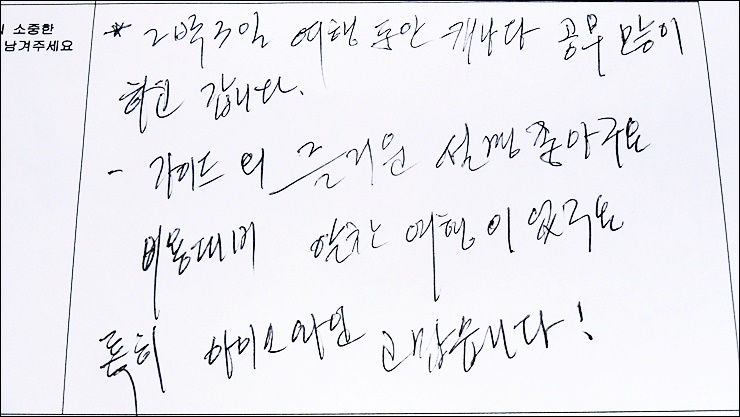 소중한
남겨주세요
* 2박3일 여행 동안 캐나다 공부 많이
하고 갑니다.
- 가이드의 즐거운 설명 좋아구요
비용대비 알찬 여행이었구요
특히 아이스와인 고맙습니다!